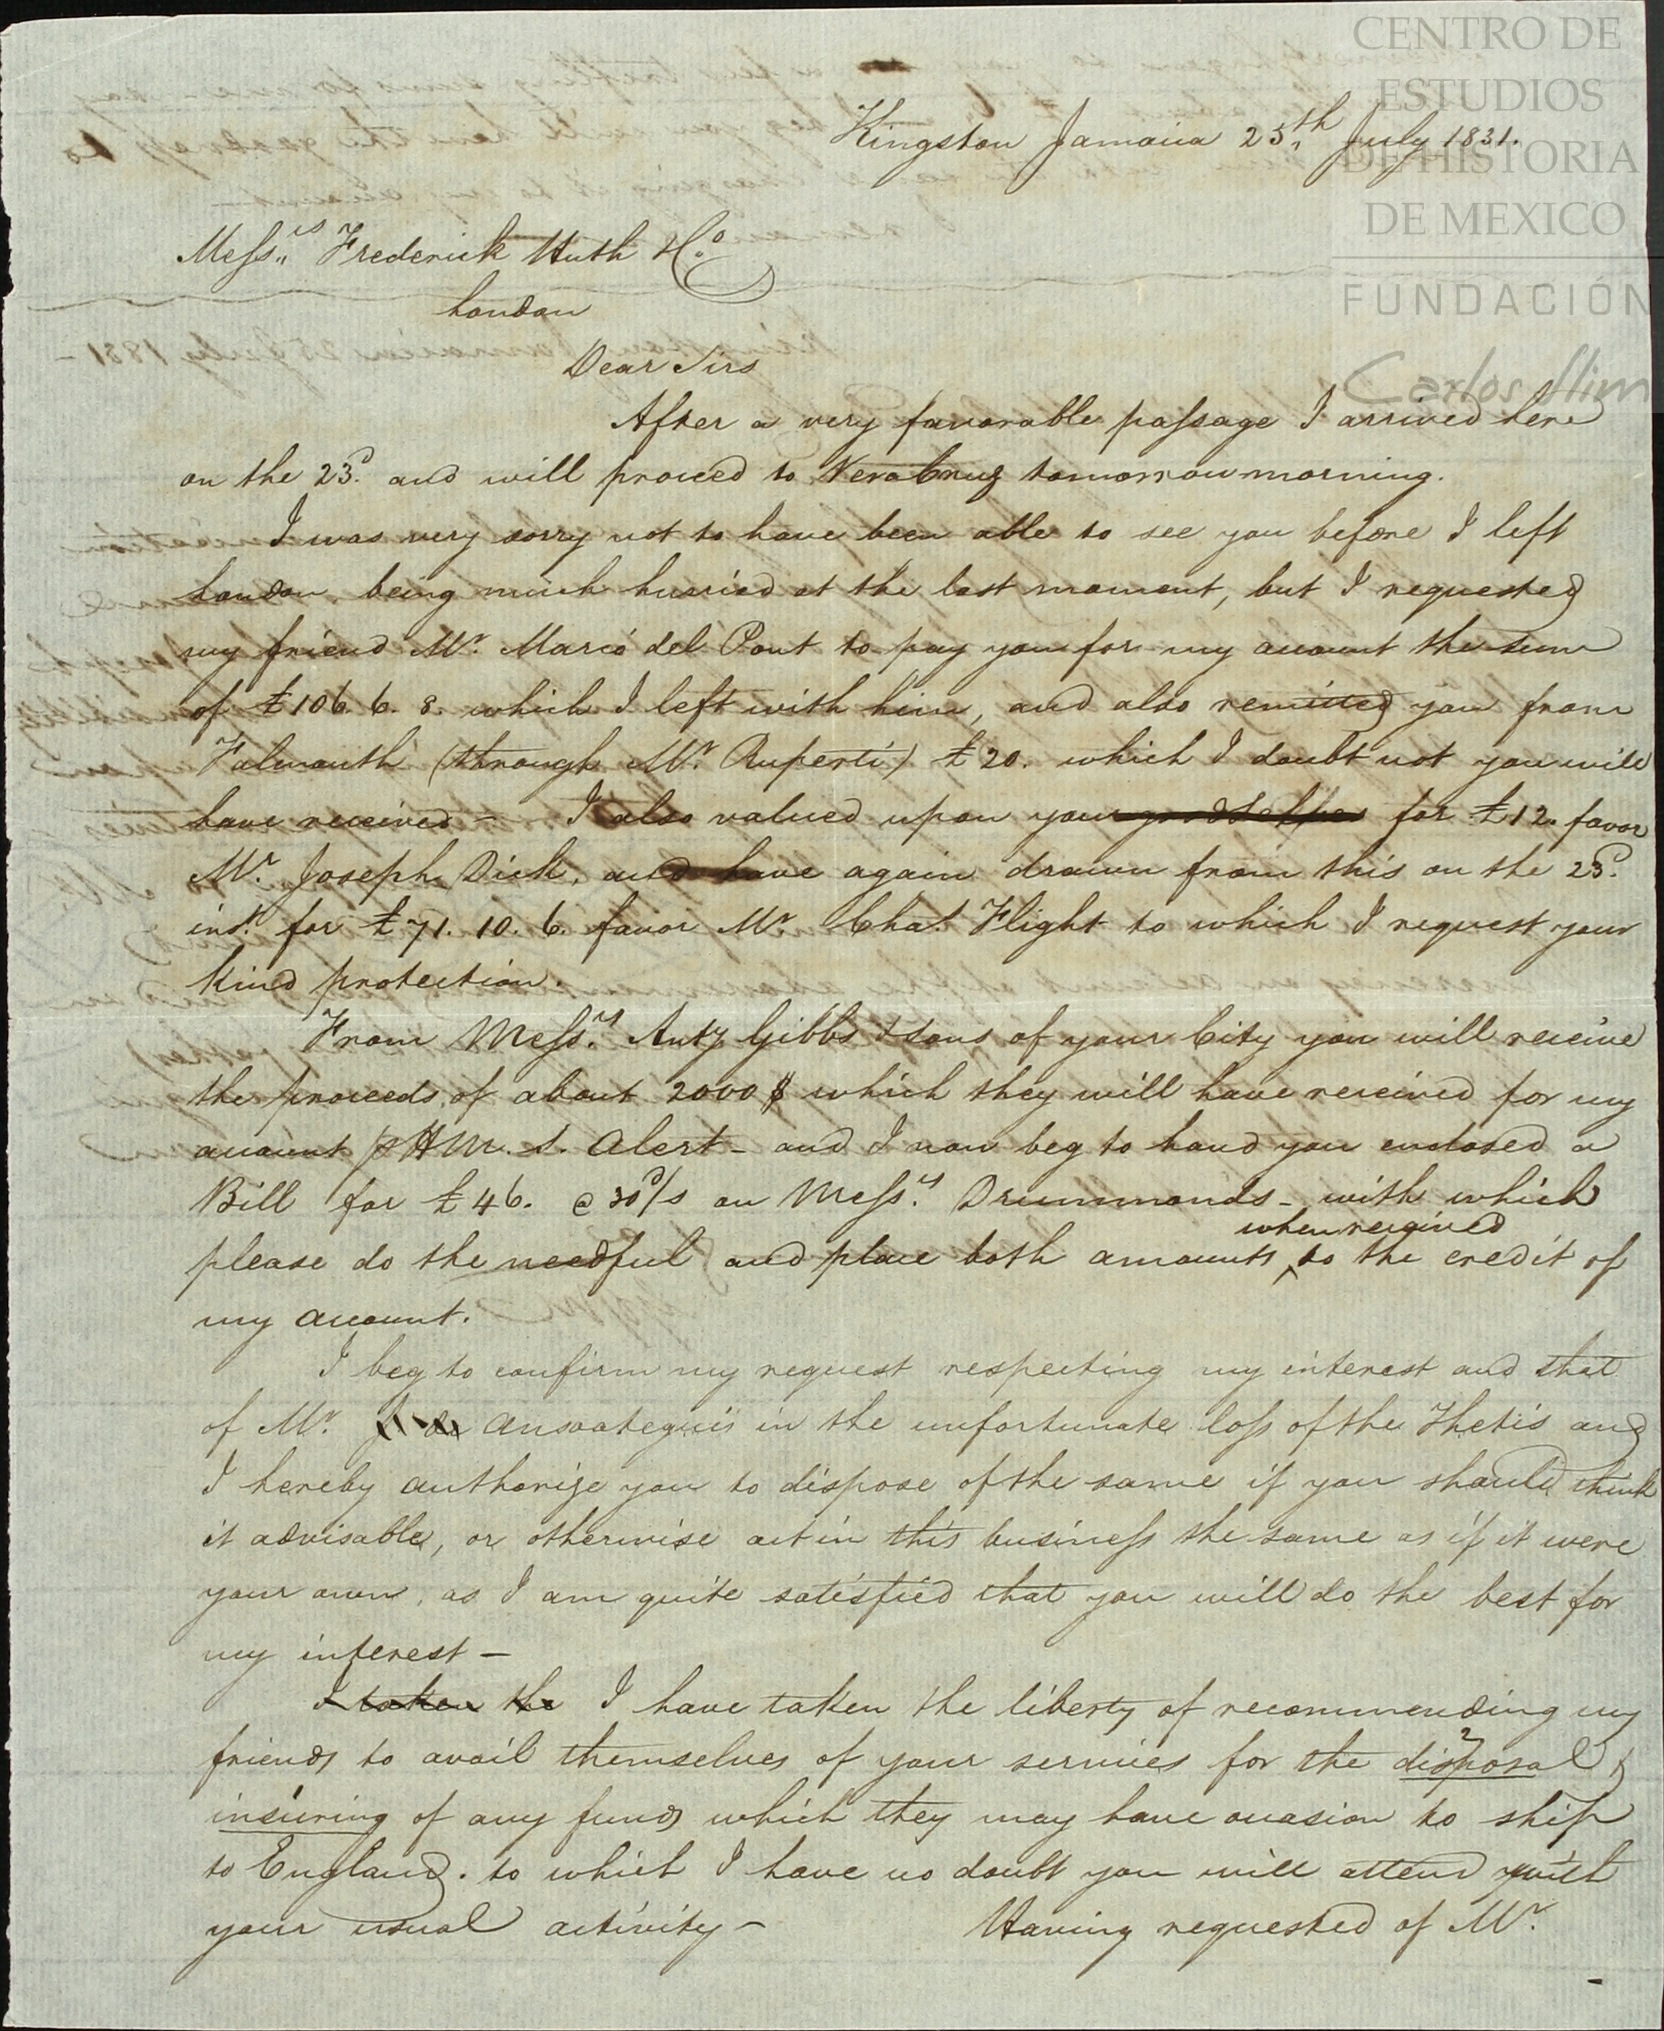 CENTRO DE
ESTUDIOS
DE HISTORIA
DE MEXICO
FUNDACIÓN
Carlos Slim
Kingston Jamaica 25th July 1831.
Messrs Frederick Huth & Co.
London
Dear Sirs
After a very favorable passage I arrived here
on the 23d. and will proceed to Vera Cruz tomorrow morning.
I was very sorry not to have been able to see you before I left
London, being much hurried at the last moment, but I requested
my friend Mr. Mario del Pont to pay you for my account the sum
of £106. 6. 8. which I left with him, and also remitted you from
Falmouth (through Mr. Ruperti) £20. which I doubt not you will
have received – I also valued upon you for £12. favor
Mr. Joseph Dick, and have again drawn from this on the 23d.
inst. for £71. 10. 6. favor Mr. Chas. Flight to which I request your
kind protection.
From Messrs. Anty Gibbs & Sons of your City you will receive
the proceeds of about 2000 $ which they will have received for my
account p H.M.S. Alert – and I now beg to hand you enclosed a
Bill for £46. @ 30 d/s on Messrs. Drummonds – with which
please do the needful and place both amounts when received to the credit of
my account.
I beg to confirm my request respecting my interest and that
of Mr. Ansoategui's in the unfortunate loss of the Thetis and
I hereby authorize you to dispose of the same if you should think
it advisable, or otherwise act in this business the same as if it were
your own, as I am quite satisfied that you will do the best for
my interest –
I taken the I have taken the liberty of recommending my
friends to avail themselves of your services for the disposal &
insuring of any funds which they may have occasion to ship
to England. to which I have no doubt you will attend with
your usual activity – Having requested of Mr.